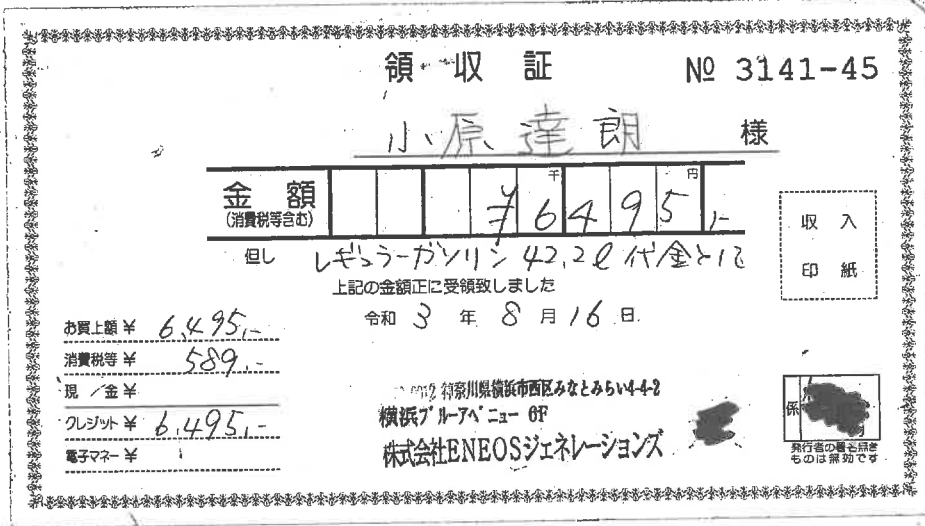 領収証 № 3141-45
小原達朗 様
金額 千 円
(消費税等含む) ¥6495,-
但し レギュラーガソリン 42,2ℓ 代金として
上記の金額正に受領致しました
令和 3 年 8 月 16 日
収入
印紙
お買上額¥ 6,495,-
消費税等¥ 589,-
現/金¥
クレジット¥ 6,495,-
電子マネー¥
神奈川県横浜市西区みなとみらい4-4-2
横浜ブルーアベニュー 6F
株式会社ENEOSジェネレーションズ
係
発行者の署名無き
ものは無効です